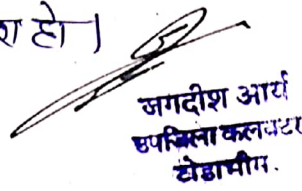 श हो।
जगदीश आर्य
उपजिला कलक्टर
टोडाभीम.